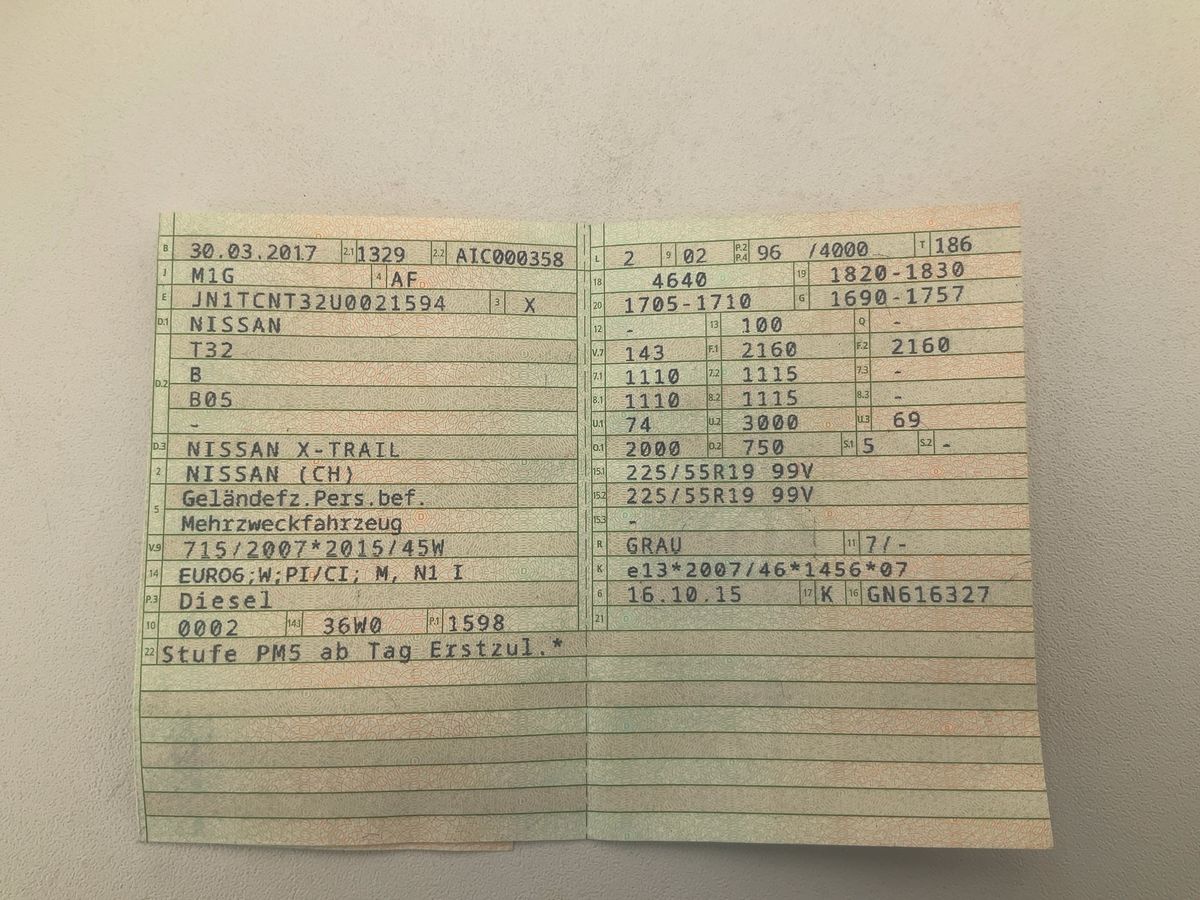 B 30.03.2017 2.1 1329 2.2 AIC000358
J M1G 4 AF
E JN1TCNT32U0021594 3 X
D.1 NISSAN
T32
D.2 B
B05
-
D.3 NISSAN X-TRAIL
2 NISSAN (CH)
5 Geländefz.Pers.bef.
Mehrzweckfahrzeug
V.9 715/2007*2015/45W
14 EURO6;W;PI/CI; M, N1 I
P.3 Diesel
10 0002 14.1 36W0 P.1 1598
22 Stufe PM5 ab Tag Erstzul.*
L 2 9 02 P.2 P.4 96 /4000 T 186
18 4640 19 1820-1830
20 1705-1710 G 1690-1757
12 - 13 100 Q -
V.7 143 F.1 2160 F.2 2160
7.1 1110 7.2 1115 7.3 -
8.1 1110 8.2 1115 8.3 -
U.1 74 U.2 3000 U.3 69
O.1 2000 O.2 750 S.1 5 S.2 -
15.1 225/55R19 99V
15.2 225/55R19 99V
15.3 -
R GRAU 11 7/-
K e13*2007/46*1456*07
6 16.10.15 17 K 16 GN616327
21